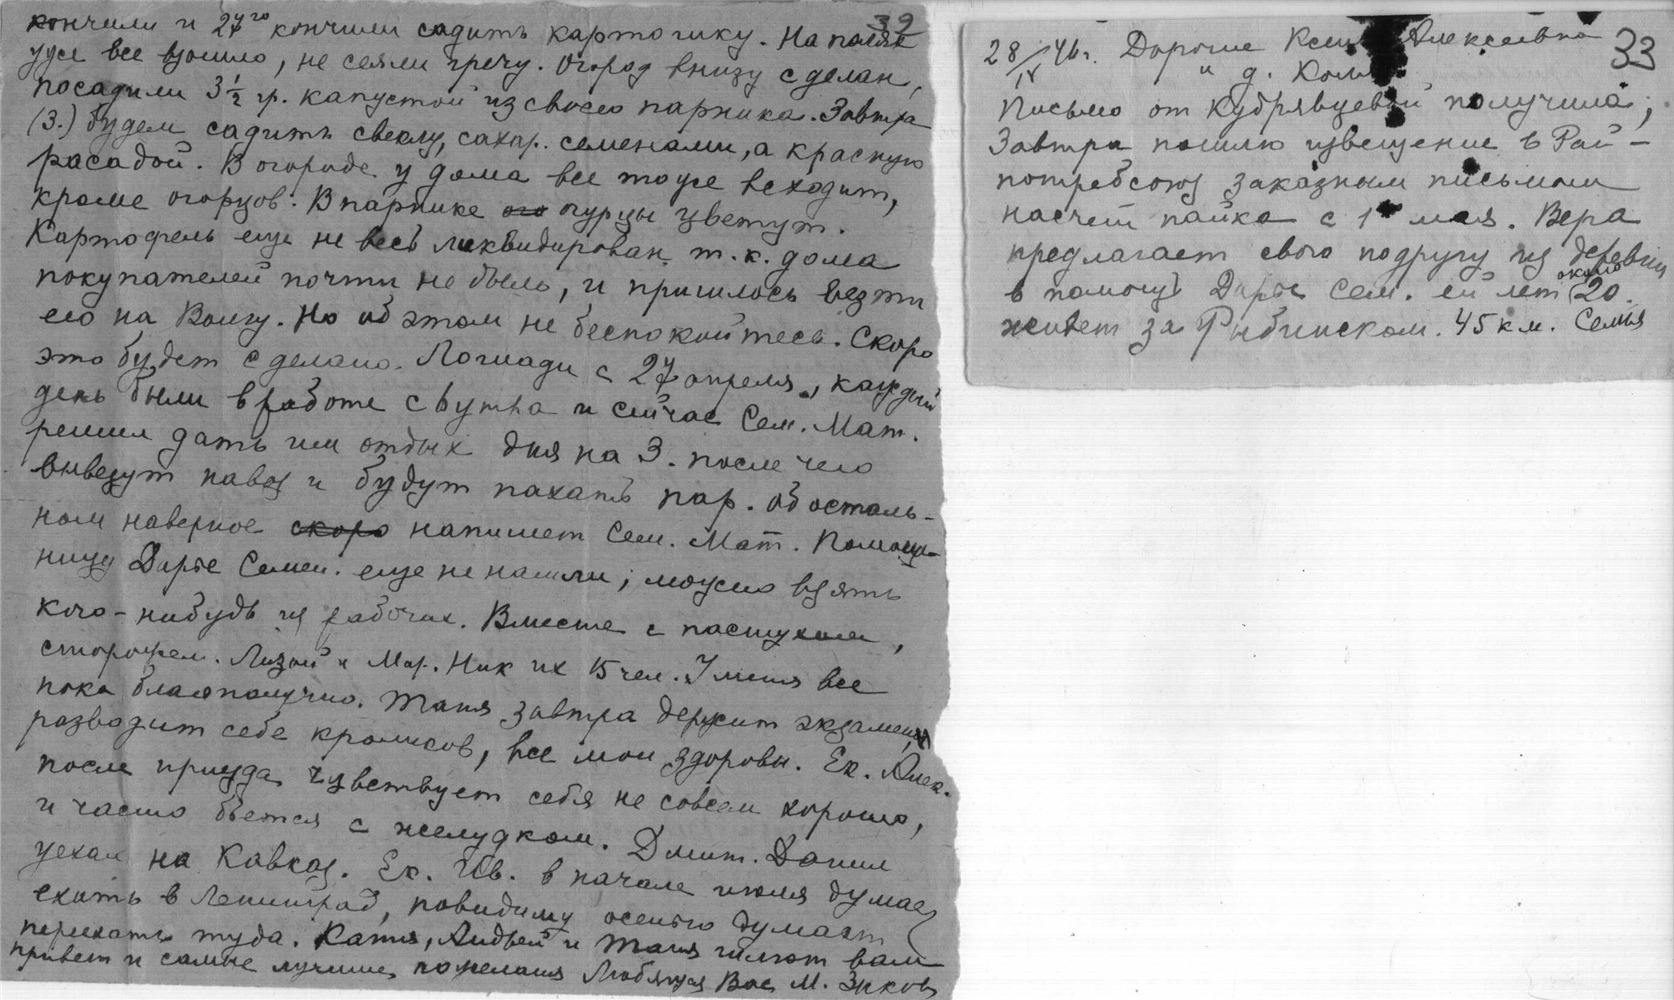 39
кончили и 27го кончили садить картошку. На полях
уже все взошло, не сеяли гречу. Огород внизу сделан,
посадили 3 1/2 гр. капустой из своего парника. Завтра
(3.) будем садить свеклу, сахар. семенами, а красную
расадой. В огороде у дома все тоже всходит,
кроме огорцов. В парнике огурцы цветут.
Картофель еще не весь ликвидирован т.к. дома
покупателей почти не было, и пришлось везти
его на Волгу. Но об этом не беспокойтесь. Скоро
это будет сделано. Лошади с 27 апреля, каждый
день были в работе с утра и сейчас Сем. Мат.
решил дать им отдых дня на 3. после чего
вывезут навоз и будут пахать пар. Об осталь-
ном наверное скоро напишет Сем. Мат. Помощ-
ницу Дарье Семен. еще не нашли; можно взять
кого-нибудь из рабочих. Вместе с пастухами,
сторожем. Лизой и Мар. Ник их 15 чел. У меня все
пока благополучно. Таня завтра держит экзамены,
разводит себе кроликов, все мои здоровы. Ек. Алек.
после приезда чувствует себя не совсем хорошо,
и часто бьется с желудком. Дмит. Данил
уехал на Кавказ. Ек. Ив. в начале июля думает
ехать в Ленинград, повидиму осенью думает
переехать туда. Катя, Андрей и Таня шлют вам
привет и самые лучшие пожелания Любящая Вас М. Зыкова
33
28/IV 46г. Дорогие Ксения Алексеевна
и д. Коля
Письмо от Кудрявцевой получила,
Завтра пошлю извещение в Рай-
потребсоюз заказным письмом
насчет пайка с 1 мая. Вера
предлагает свою подругу из деревни
в помощь Дарье Сем. ей лет около 20.
живет за Рыбинском. 45 км. Семья